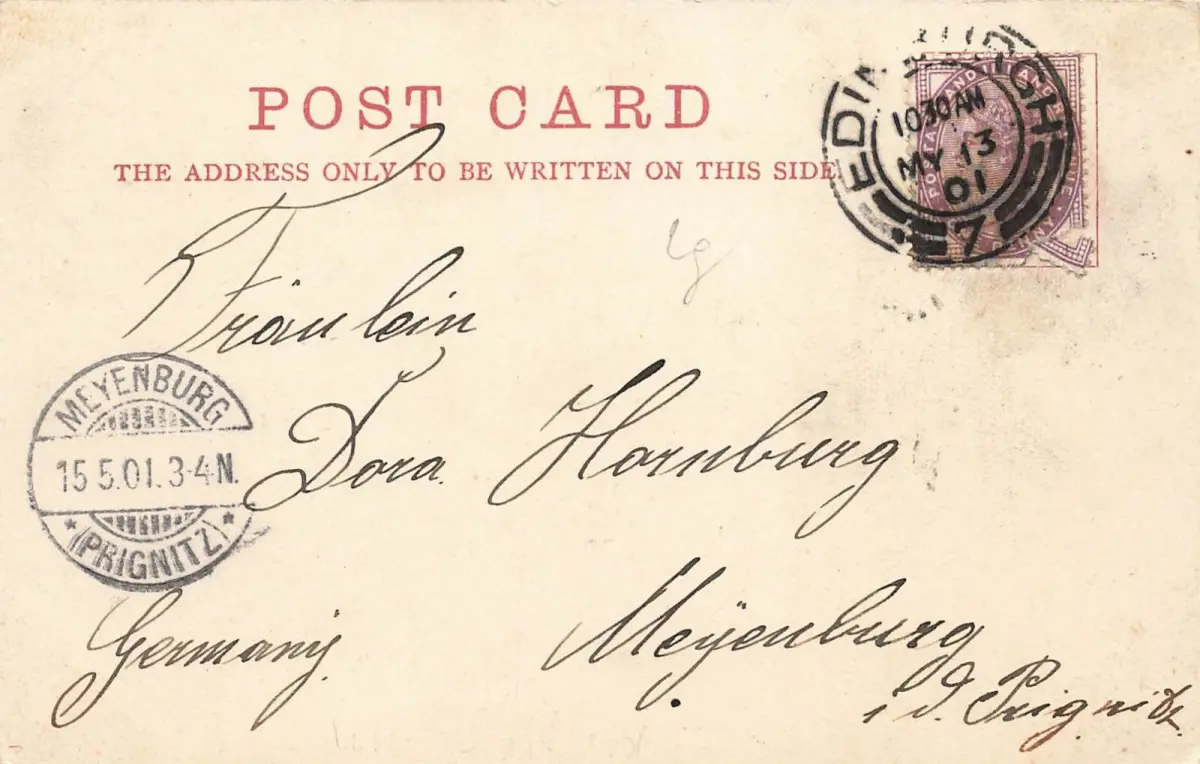 POST CARD
THE ADDRESS ONLY TO BE WRITTEN ON THIS SIDE
EDINBURGH
10 30 AM
MY 13
01
7
Fräulein
Dora Hornburg
MEYENBURG
15 5.01. 3-4 N.
* (PRIGNITZ) *
Germany.
Meÿenburg
i. d. Prignitz.